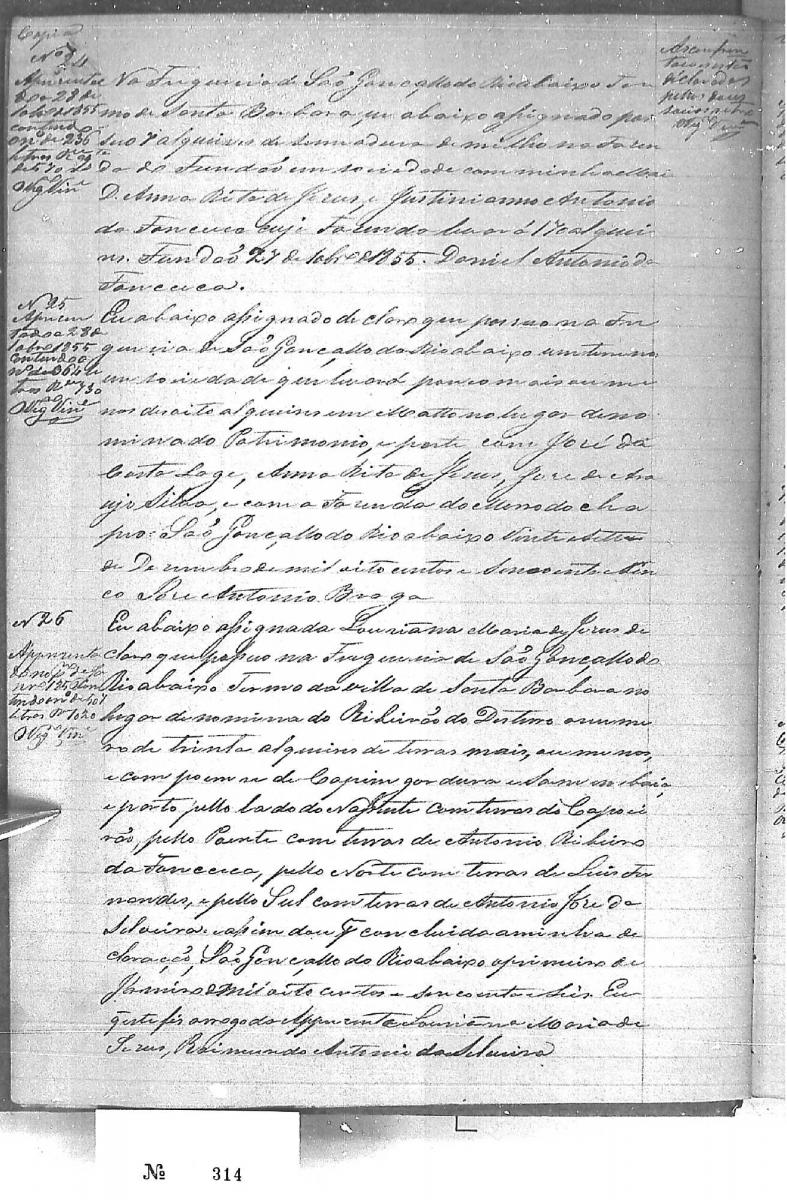 Copia
Nº 24
Apresentado a 28 de
1855
contendo
de 236
letras
Vigº Vinª
Na Freguezia de São Gonçallo do Rio abaixo Ter
mo de Santa Barbara, eu abaixo assignado pos
suo 7 alqueires de semeadura de milho na Fazen
da do Fundão em sociedade com minha Mai
D. Anna Rita de Jesus, e Justinianno Antonio
da Fonceca cuja Fazenda levará 17 alquei
res. Fundão 27 de 1855. Daniel Antonio da
Fonceca.
As confron
tações estão
declaradas
pelos seus
Vigº Vinª
Nº 25
Apresen
tado a 28 de
1855
contendo o
nº de 364 le
tras
Vigº Vinª
Eu abaixo assignado declaro que possuo na Fre
guezia de São Gonçallo do Rio abaixo um terreno
em sociedade que levará pouco mais ou me
nos desoito alqueires em Matto no lugar deno
minado Patrimonio, e parte com José da
Costa Lage, Anna Rita de Jesus, José de Ara
ujo Silva, e com a Fazenda do Morro do cha
peo: São Gonçallo do Rio abaixo Vinte e Sette
de Dezembro de mil oito centos e Sincoenta e Sin
co José Antonio Braga
Nº 26
Appresenta
do no 1º de Ja
nrº 1856 Con
tendo o nº de 501
letras Rs 1020
Vigº Vinª
Eu abaixo assignada Louriana Maria de Jesus de
claro que possuo na Freguezia de São Gonçallo do
Rio abaixo Termo da villa de Santa Barbara no
lugar denominado Ribeirão do Desterro o nume
ro de trinta alqueires de terras mais, ou menos,
e com poem se de Capim gordura e Samambaia,
e parto pello lado do Nassente com terras do Capoei
rão, pello Poente com terras de Antonio Ribeiro
da Fonceca, pello Norte com terras de Luis Fer
nandes, e pello Sul com terras de Antonio José da
Silveira: e assim dou p concluida a minha de
claração, São Gonçallo do Rio abaixo o primeiro de
Janeiro de mil oito centos e sincoenta e Seis. Eu
q este fis a rogo da Appresenta Louriana Maria de
Jesus, Raimundo Antonio da Silveira
Nº 314